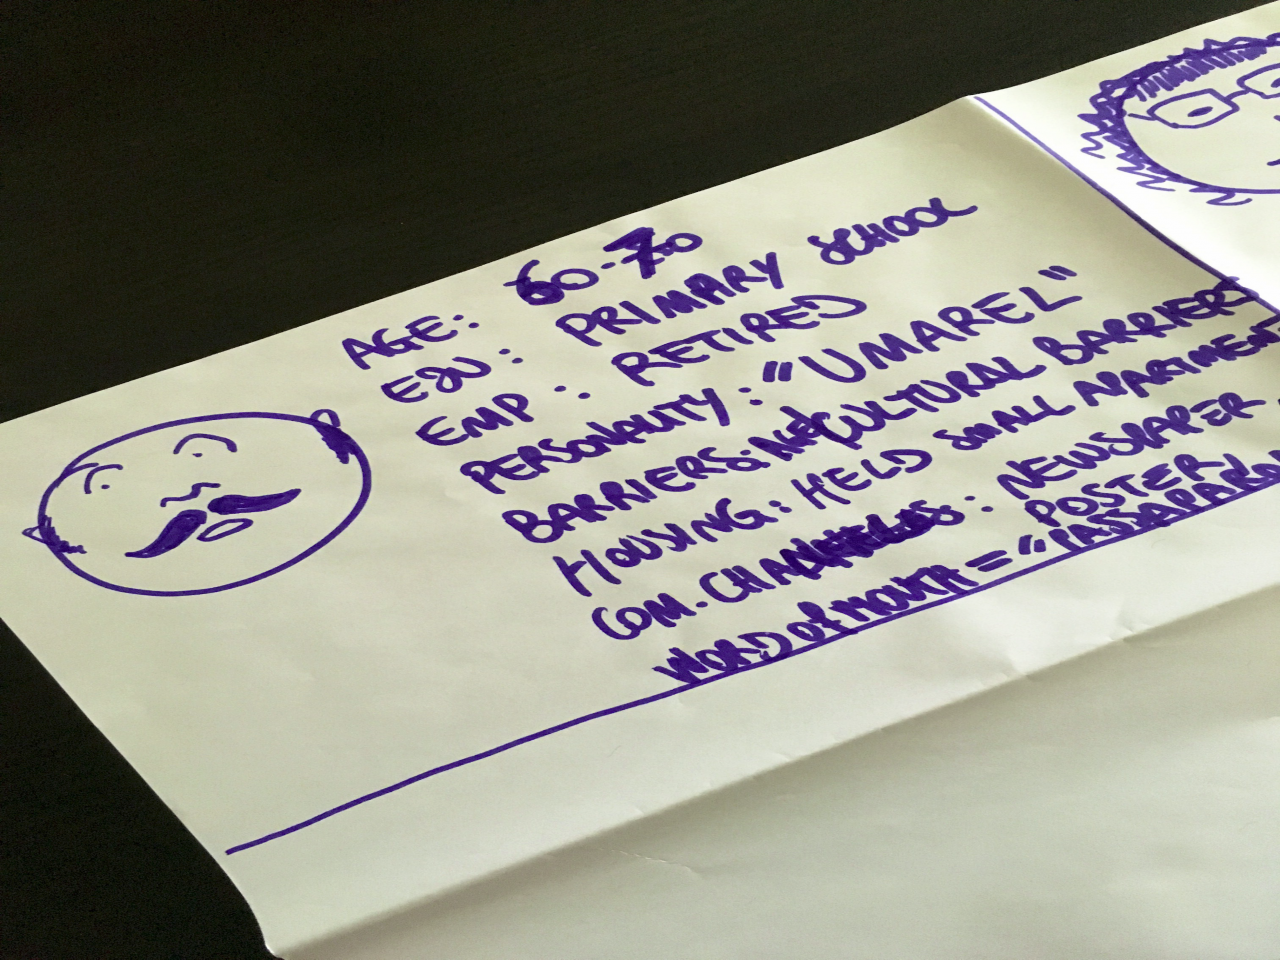 AGE: 60-70
EDU: PRIMARY SCHOOL
EMP: RETIRED
PERSONALITY: "UMAREL"
BARRIERS: CULTURAL BARRIERS
HOUSING: HELD SMALL APARTMENT
COM. CHANNELS: NEWSPAPER
POSTER,
WORD OF MOUTH = "PASSAPAROL